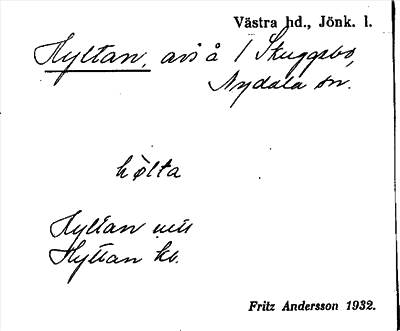 Västra hd., Jönk. l.
Hyltan, avs å 1 Skuggebo,
Nydala sn.
hölta
Hyltan
Hyltan kv.
Fritz Andersson 1932.